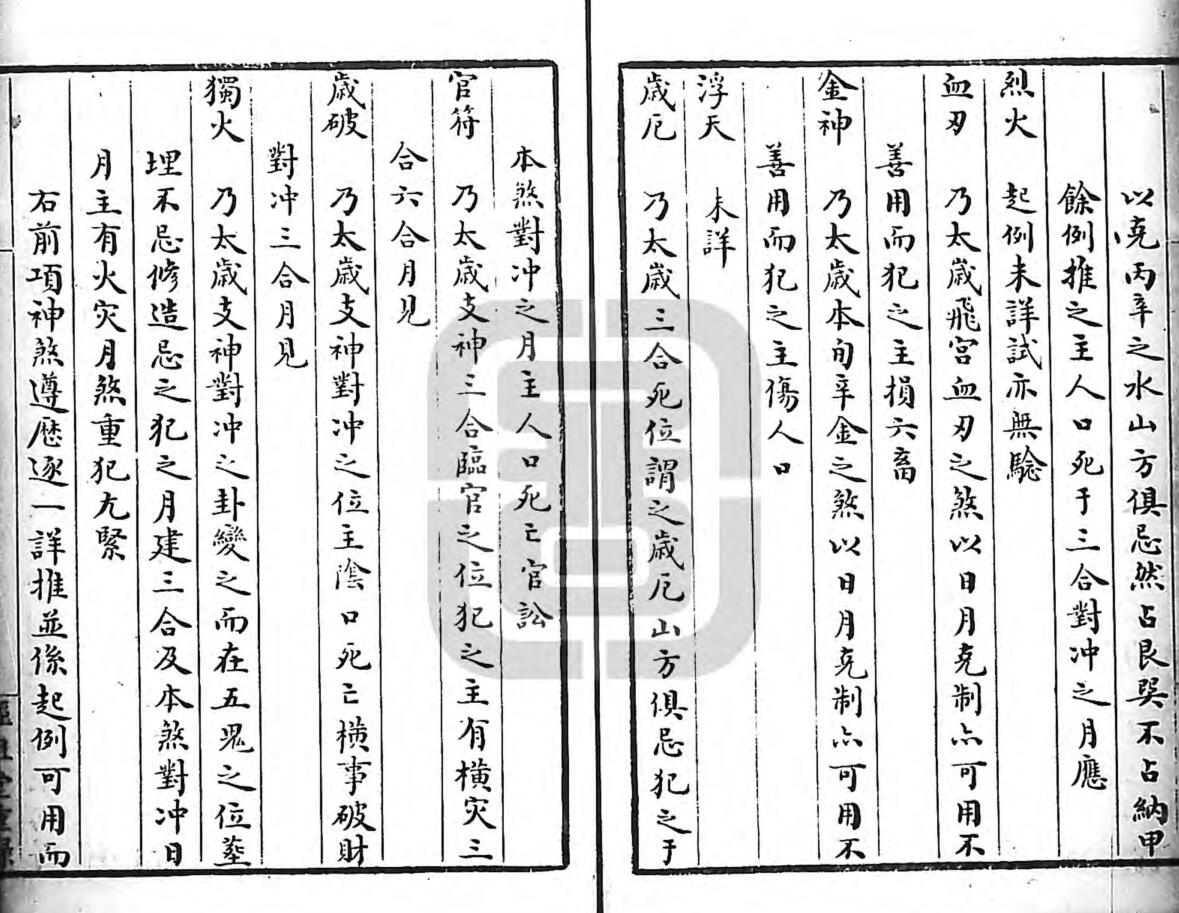 以克丙辛之水山方俱忌然占艮巽不占納甲
餘例推之主人口死于三合對冲之月應
烈火　起例未詳試亦無驗
血刃　乃太歲飛宮血刃之煞以日月克制亦可用不
善用而犯之主損六畜
金神　乃太歲本旬辛金之煞以日月克制亦可用不
善用而犯之主傷人口
浮天　未詳
歲厄　乃太歲三合死位謂之歲厄山方俱忌犯之于
本煞對冲之月主人口死亡官訟
官符　乃太歲支神三合臨官之位犯之主有橫灾三
合六合月見
歲破　乃太歲支神對冲之位主陰口死亡橫事破財
對冲三合月見
獨火　乃太歲支神對冲之卦變之而在五鬼之位塟
埋不忌修造忌之犯之月建三合及本煞對冲日
月主有火灾月煞重犯尤緊
右前項神煞遵歷逐一詳推並係起例可用而